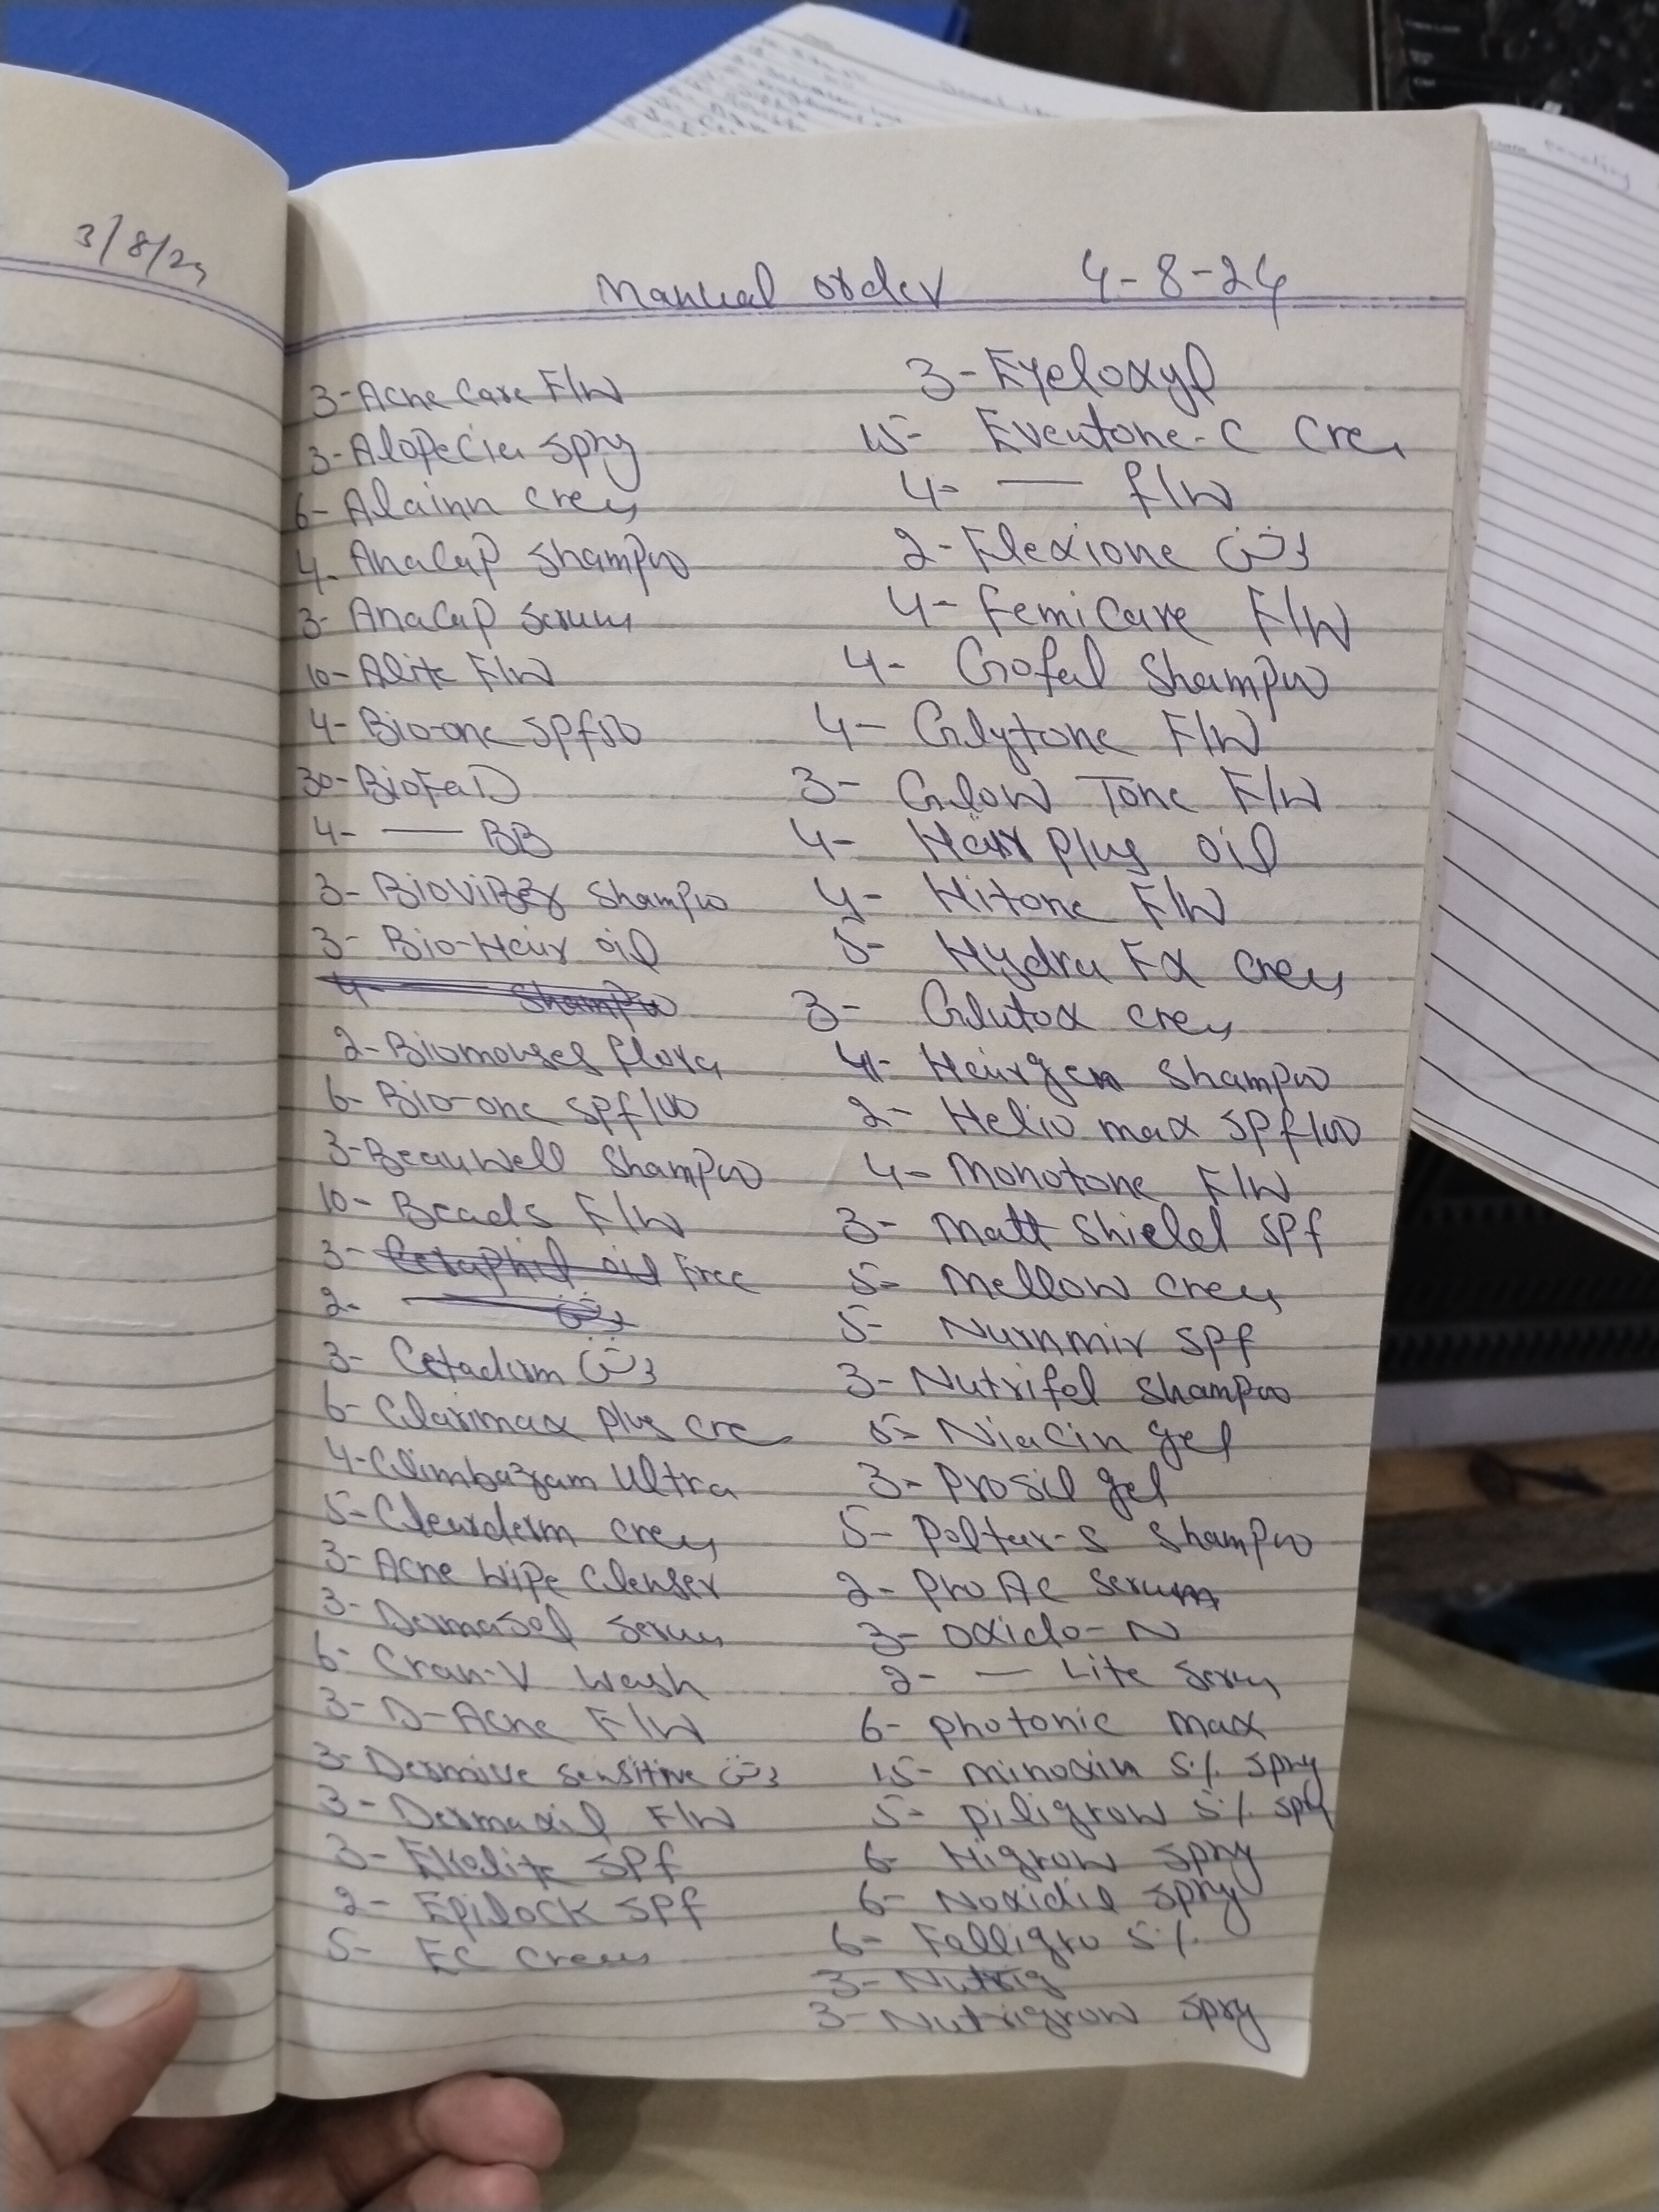 3/8/24
Manual order 4-8-24
3- Acne Care F/W
3- Alopecia spry
6- Alainn crem
4- AnaCap Shampoo
3- AnaCap Serum
10- Alite F/W
4- Bio-one SPf50
30- BioFad
4- — BB
3- Bioviber Shampoo
3- Bio-Hair oil
4- — Shampoo
2- Biomouses flora
6- Bio-one SPf100
3- Beauwell Shampoo
10- Beads F/W
3- Cetaphil oil Free
2- — لوشن
3- Cetaderm لوشن
6- Clarimax plus cre
4- Climbazam Ultra
5- Clearderm crem
3- Acne Wipe Clenser
3- Dermasol Serum
6- Cran-V Wash
3- D-Acne F/W
3- Dermive sensitive لوشن
3- Dermaxil F/W
3- Ekelite SPf
2- Epilock SPf
5- EC Crem
3- Eyeloxyl
15- Eventone-C Cre
4- — f/W
2- Flexione لوشن
4- Femicare F/W
4- Gofal Shampoo
4- Glytone F/W
3- Glow Tone F/W
4- Hair plus oil
4- Hitone F/W
5- Hydra Fx crem
3- Glutox crem
4- Hairgen Shampoo
2- Helio max SPf100
4- Monotone F/W
3- Matt Shield SPf
5- Mellow crem
5- Nurnmir SPf
3- Nutrifol Shampoo
5- Niacin gel
3- Prosil gel
5- Poltar-S Shampoo
2- Pro Ac Serum
3- Oxido-N
2- — Lite Serum
6- photonic max
15- Minoxin 5% spry
5- piligrow 5% spry
6- Higrow spry
6- Noxidil spry
6- Folligro 5%
3- Nutrig
3- Nutrigrow spry